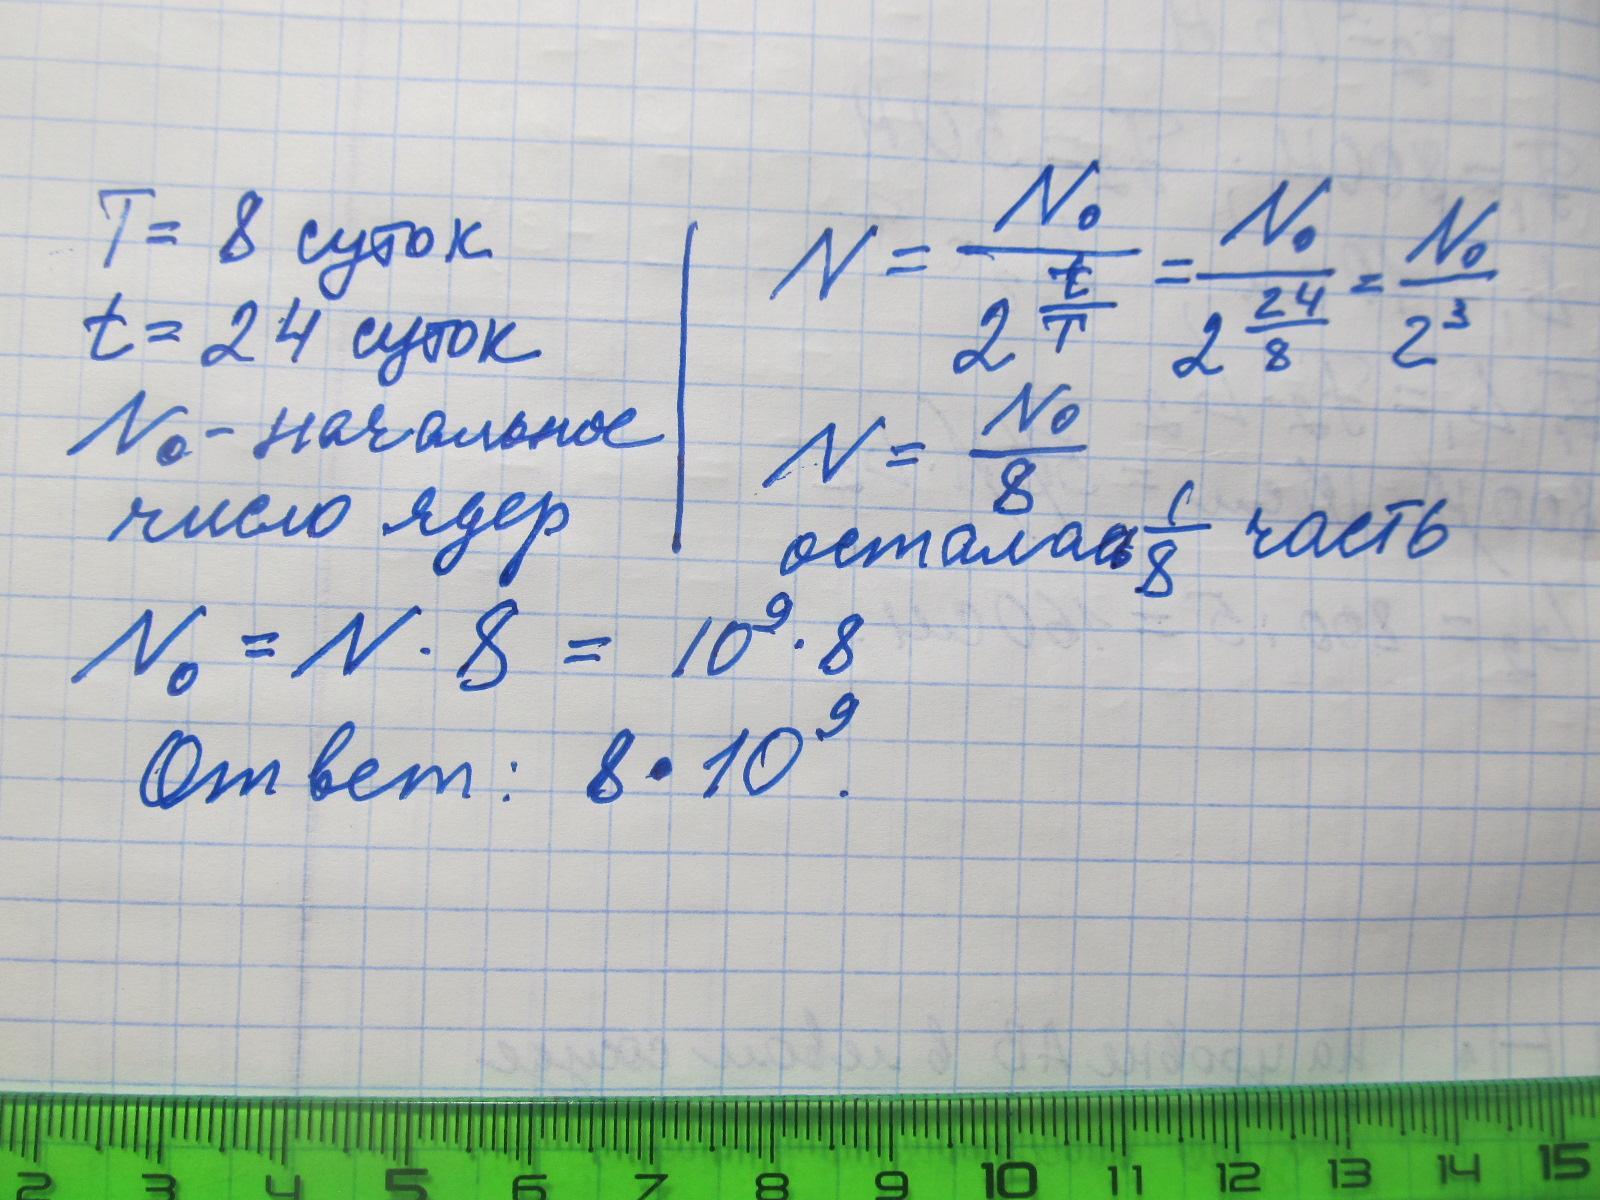 T = 8 суток
t = 24 суток
N₀ - начальное
число ядер
N = N₀ / 2^(t/T) = N₀ / 2^(24/8) = N₀ / 2³
N = N₀ / 8
осталась 1/8 часть
N₀ = N · 8 = 10⁹ · 8
Ответ: 8 · 10⁹.
2 3 4 5 6 7 8 9 10 11 12 13 14 15